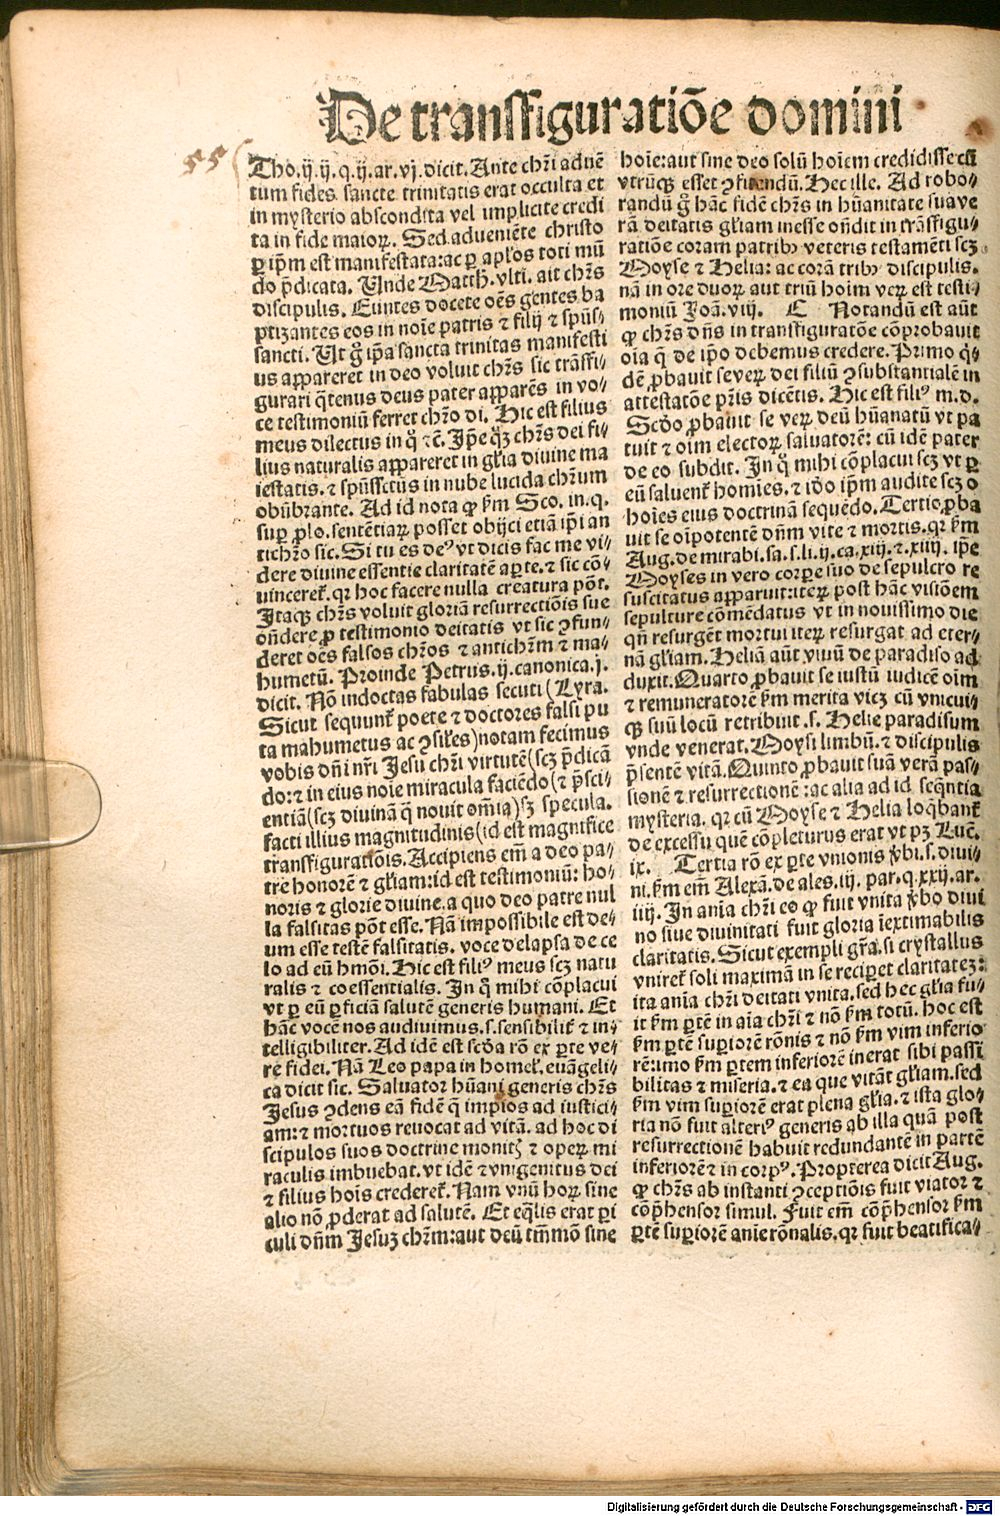 De transfiguratiõe domini
55
Tho.ij.ij.q.ij.ar.vj.dicit. Ante chr̃i aduẽ
tum fides sancte trinitatis erat occulta et
in mysterio abscondita vel implicite credi
ta in fide maioꝝ. Sed adueniẽte christo
ꝑ ip̃m est manifestata: ac ꝑ aplos toti mũ
do p̃dicata. Unde Matth. vlti. ait chr̃s
discipulis. Euntes docete oẽs gentes ba
ptizantes eos in noĩe patris ⁊ filij ⁊ spũs⸗
sancti. Ut g̊ ip̃a sancta trinitas manifesti
us appareret in deo voluit chr̃s sic trãsfi⸗
gurari q̃tenus deus pater apparẽs in vo⸗
ce testimoniũ ferret chr̃o di. Hic est filius
meus dilectus in q̊ ⁊c̃. Ip̃e q̊ꝫ chr̃s dei fi⸗
lius naturalis appareret in gl̃ia diuine ma
iestatis. ⁊ spũssctũs in nube lucida chr̃um
obũbrante. Ad id nota ꝙ ẜm Sco. in. q.
suꝑ ꝓlo. sentẽtiaꝝ posset obijci etiã ip̃i an
tichr̃o sic. Si tu es deꝰ vt dicis fac me vi⸗
dere diuine essentie claritatẽ aꝑte. ⁊ sic cõ⸗
uinceret̃. qꝛ hoc facere nulla creatura põt.
Itaqꝫ chr̃s voluit gloriã resurrectiõis sue
oñdere ꝓ testimonio deitatis vt sic ꝯfun⸗
deret oẽs falsos chr̃os ⁊ antichr̃m ⁊ ma⸗
humetũ. Proinde Petrus. ij. canonica. j.
dicit. Nõ indoctas fabulas secuti (Lyra.
Sicut sequunt̃ poete ⁊ doctores falsi pu
ta mahumetus ac ꝯsil̃es) notam fecimus
vobis dñi nr̃i Jesu chr̃i virtutẽ (scꝫ p̃dicã
do: ⁊ in eius noĩe miracula faciẽdo (⁊ p̃sci⸗
entiã (scꝫ diuinã q̃ nouit om̃ia) sꝫ specula.
facti illius magnitudinis (id est magnifice
transfiguratiõis. Accipiens em̃ a deo pa⸗
tre honorẽ ⁊ gl̃iam: id est testimoniũ: ho⸗
noris ⁊ glorie diuine. a quo deo patre nul
la falsitas põt esse. Nã impossibile est de⸗
um esse testẽ falsitatis. voce delapsa de ce
lo ad eũ hmõi. Hic est filiꝰ meus scꝫ natu
ralis ⁊ coessentialis. In q̊ mihi cõplacui
vt ꝑ eũ ꝑficiã salutẽ generis humani. Et
hãc vocẽ nos audiuimus. s. sensibilit̃ ⁊ in⸗
telligibiliter. Ad idẽ est scd̃a rõ ex ꝑte ve⸗
re fidei. Nã Leo papa in homel̃. euãgeli⸗
ca dicit sic. Saluator hũani generis chr̃s
Jesus ꝯdens eã fidẽ q̃ impios ad iustici⸗
am: ⁊ mortuos reuocat ad vitã. ad hoc di
scipulos suos doctrine monitꝭ ⁊ opeꝝ mi
raculis imbuebat. vt idẽ ⁊ vnigenitus dei
⁊ filius hoĩs crederet̃. Nam vnũ hoꝝ sine
alio nõ ꝓderat ad salutẽ. Et eq̃lis erat ꝑi
culi dñm Jesuꝫ chr̃m: aut deũ tm̃mõ sine
hoĩe: aut sine deo solũ hoĩem credidisse cũ
vtrũqꝫ esset ꝯfitendũ. Hec ille. Ad robo⸗
randũ g̊ hãc fidẽ chr̃s in hũanitate sua ve
rã deitatis gl̃iam inesse oñdit in trãsfigu⸗
ratiõe coram patribꝰ veteris testamẽti scꝫ
Moyse ⁊ Helia: ac corã tribꝰ discipulis.
nã in ore duoꝝ aut triũ hoĩm veꝝ est testi⸗
moniũ Joã. viij. ¶ Notandũ est aũt
ꝙ chr̃s dñs in transfiguratõe cõprobauit
oĩa q̃ de ip̃o debemus credere. Primo q̃⸗
dẽ ꝓbauit se veꝝ dei filiũ ꝯsubstantialẽ in
attestatõe pr̃is dicẽtis. Hic est filiꝰ m. d.
Scd̃o ꝓbauit se veꝝ deũ hũanatũ vt pa
tuit ⁊ oĩm electoꝝ saluatorẽ: cũ idẽ pater
de eo subdit. In q̊ mihi cõplacui scꝫ vt ꝑ
eũ saluent̃ homĩes. ⁊ iõ ip̃m audite scꝫ o
hoĩes eius doctrinã sequẽdo. Tertio ꝓba
uit se oĩpotentẽ dñm vite ⁊ mortis. qꝛ ẜm
Aug. de mirabi. sa. s. li. ij. ca. xiij. ⁊. xiiij. ip̃e
Moyses in vero corꝑe suo de sepulcro re
suscitatus apparuit: iteꝝ post hãc visiõem
sepulture cõmẽdatus vt in nouissimo die
qñ resurgẽt mortui iteꝝ resurgat ad eter⸗
nã gl̃iam. Heliã aũt viuũ de paradiso ad
duxit. Quarto ꝓbauit se iustũ iudicẽ oĩm
⁊ remuneratorẽ ẜm merita vicꝫ cũ vnicui⸗
qꝫ suũ locũ retribuit. s. Helie paradisum
vnde venerat. Moysi limbũ. ⁊ discipulis
p̃sentẽ vitã. Quinto ꝓbauit suã verã pas⸗
sionẽ ⁊ resurrectionẽ: ac alia ad id seq̃ntia
mysteria. qꝛ cũ Moyse ⁊ Helia loq̃bant̃
de excessu quẽ cõpleturus erat vt pꝫ Luc̃.
ix. Tertia rõ ex ꝑte vnionis ꝟbi. s. diui⸗
ni. ẜm em̃ Alexã. de ales. iij. par. q. xxij. ar.
iiij. In aĩa chr̃i eo ꝙ fuit vnita ꝟbo diui
no siue diuinitati fuit gloria ĩextimabilis
claritatis. Sicut exempli gr̃a. si crystallus
vniret̃ soli maximã in se reciꝑet claritateꝫ:
ita aĩa chr̃i deitati vnita. sed hec gl̃ia fu⸗
it ẜm ꝑtẽ in aĩa chr̃i ⁊ nõ ẜm totũ. hoc est
ẜm ꝑtẽ suꝑiorẽ rõnis ⁊ nõ ẜm vim inferio
rẽ: imo ẜm ꝑtem inferiorẽ inerat sibi passi
bilitas ⁊ miseria. ⁊ ea que vitãt gl̃iam. sed
ẜm vim suꝑiorẽ erat plena gl̃ia. ⁊ ista glo⸗
ria nõ fuit alteriꝰ generis ab illa quã post
resurrectionẽ habuit redundantẽ in partẽ
inferiorẽ ⁊ in corpꝰ. Propterea dicit Aug.
ꝙ chr̃s ab instanti ꝯceptiõis fuit viator ⁊
cõp̃hensor simul. Fuit em̃ cõp̃hensor ẜm
ꝑtẽ suꝑiorẽ anĩe rõnalis. qꝛ fuit beatifica⸗
Digitalisierung gefördert durch die Deutsche Forschungsgemeinschaft - DFG